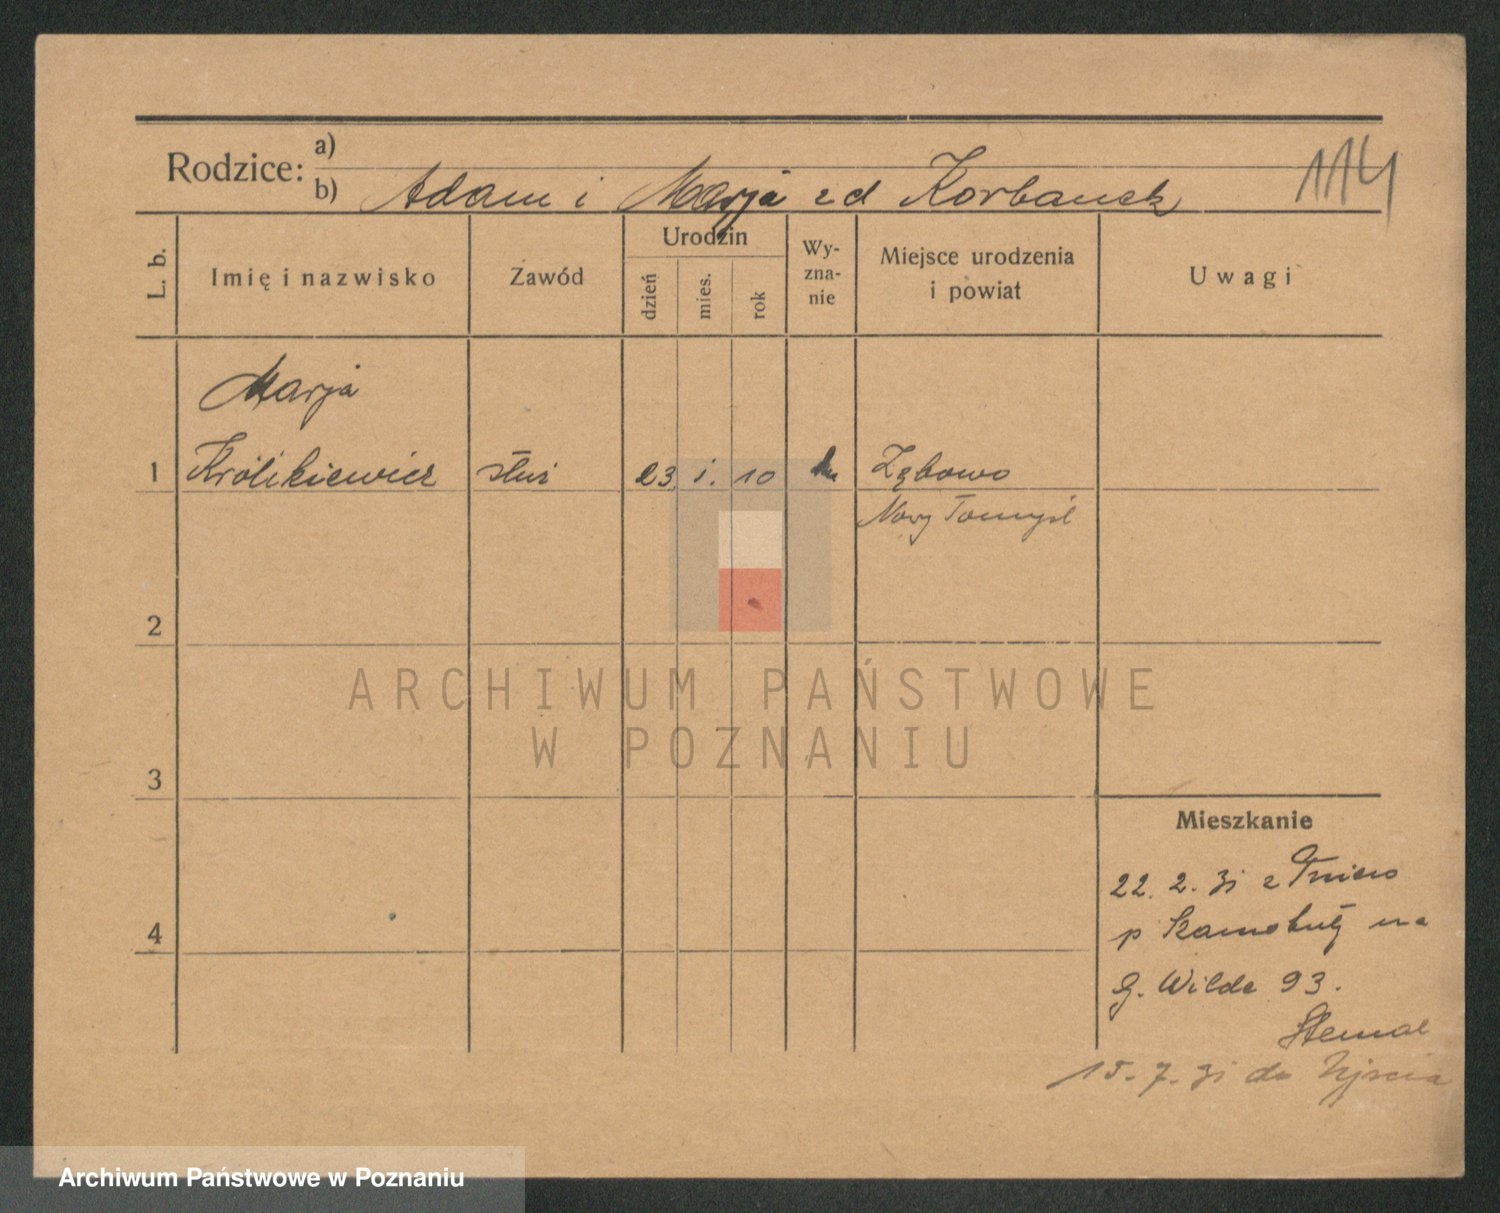 114
Rodzice: a)
b) Adam i Marja zd Korbanek
L. b.
Imię i nazwisko
Zawód
Urodzin
dzień
mies.
rok
Wy-
zna-
nie
Miejsce urodzenia
i powiat
Uwagi
Marja
1 Królikiewicz służ 23. i. 10 Zębowo
Nowy Tomyśl
2
3
4
Mieszkanie
22. 2. 31 z
p Szamotuły na
G. Wilda 93.
15. 7. 31 do Ujścia
ARCHIWUM PAŃSTWOWE
W POZNANIU
Archiwum Państwowe w Poznaniu